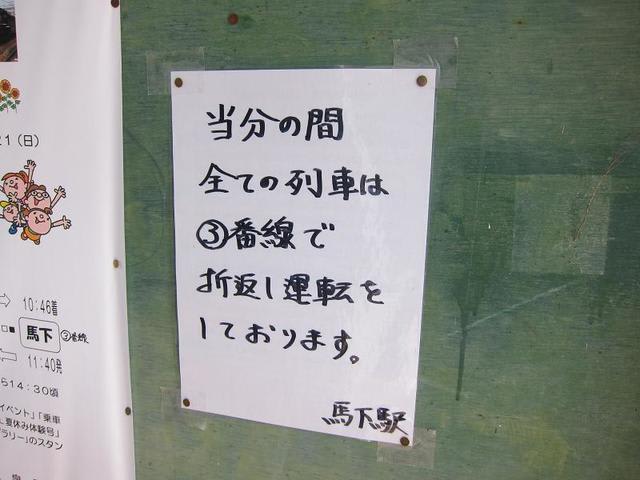 当分の間
全ての列車は
③番線で
折返し運転を
しております。
馬下駅
21（日）
10:46着
馬下
③番線
11:40発
ら14：30頃
イベント」「乗車
L夏休み体験号」
ラリー」のスタン